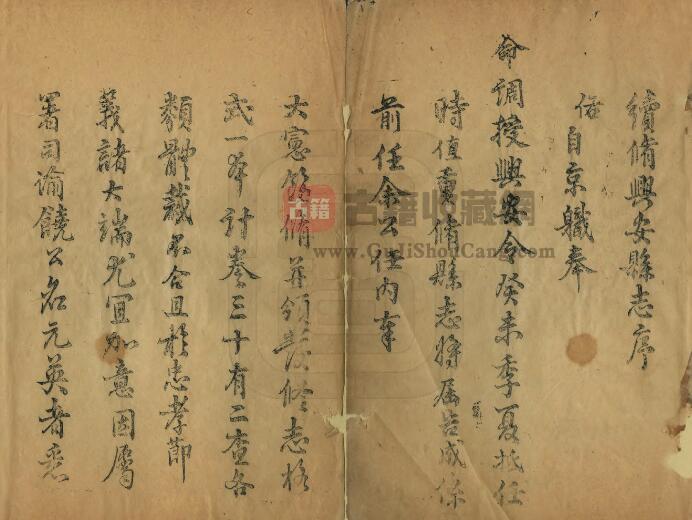 續脩興安縣志序
伍自京職奉
命調授興安令癸未季夏抵任
時值重脩縣志將屆告成係
前任余公任內奉
大憲飭脩並頒發修志格
式一本計卷三十有二查各
類體裁不合且於忠孝節
義諸大端尤宜加意因屬
署司諭饒公名元英者悉
古籍
古籍收藏網
www.GuJiShouCang.com